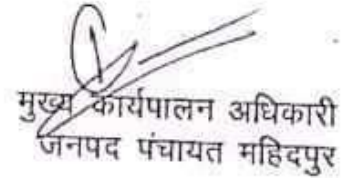 मुख्य कार्यपालन अधिकारी
जनपद पंचायत महिदपुर